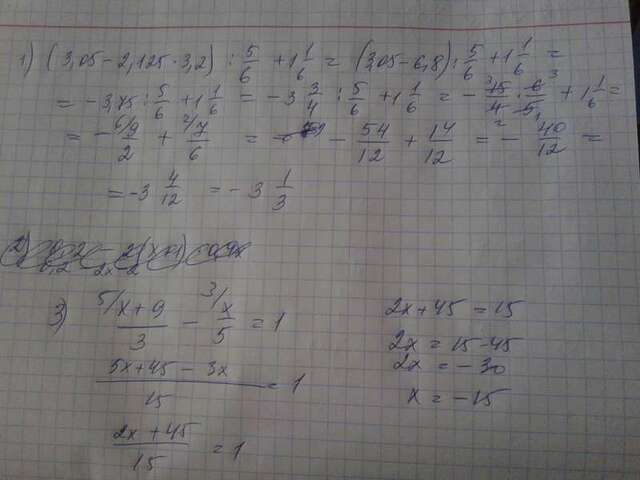 1) (3,05 - 2,125 · 3,2) : 5/6 + 1 1/6 = (3,05 - 6,8) : 5/6 + 1 1/6 =
= -3,75 : 5/6 + 1 1/6 = -3 3/4 : 5/6 + 1 1/6 = - 15/4 · 6/5 + 1 1/6 =
= - 9/2 + 7/6 = - 54/12 + 14/12 = - 40/12 =
= -3 4/12 = -3 1/3
2)
3) (x+9)/3 - x/5 = 1
(5x+45-3x)/15 = 1
(2x+45)/15 = 1
2x+45 = 15
2x = 15-45
2x = -30
x = -15